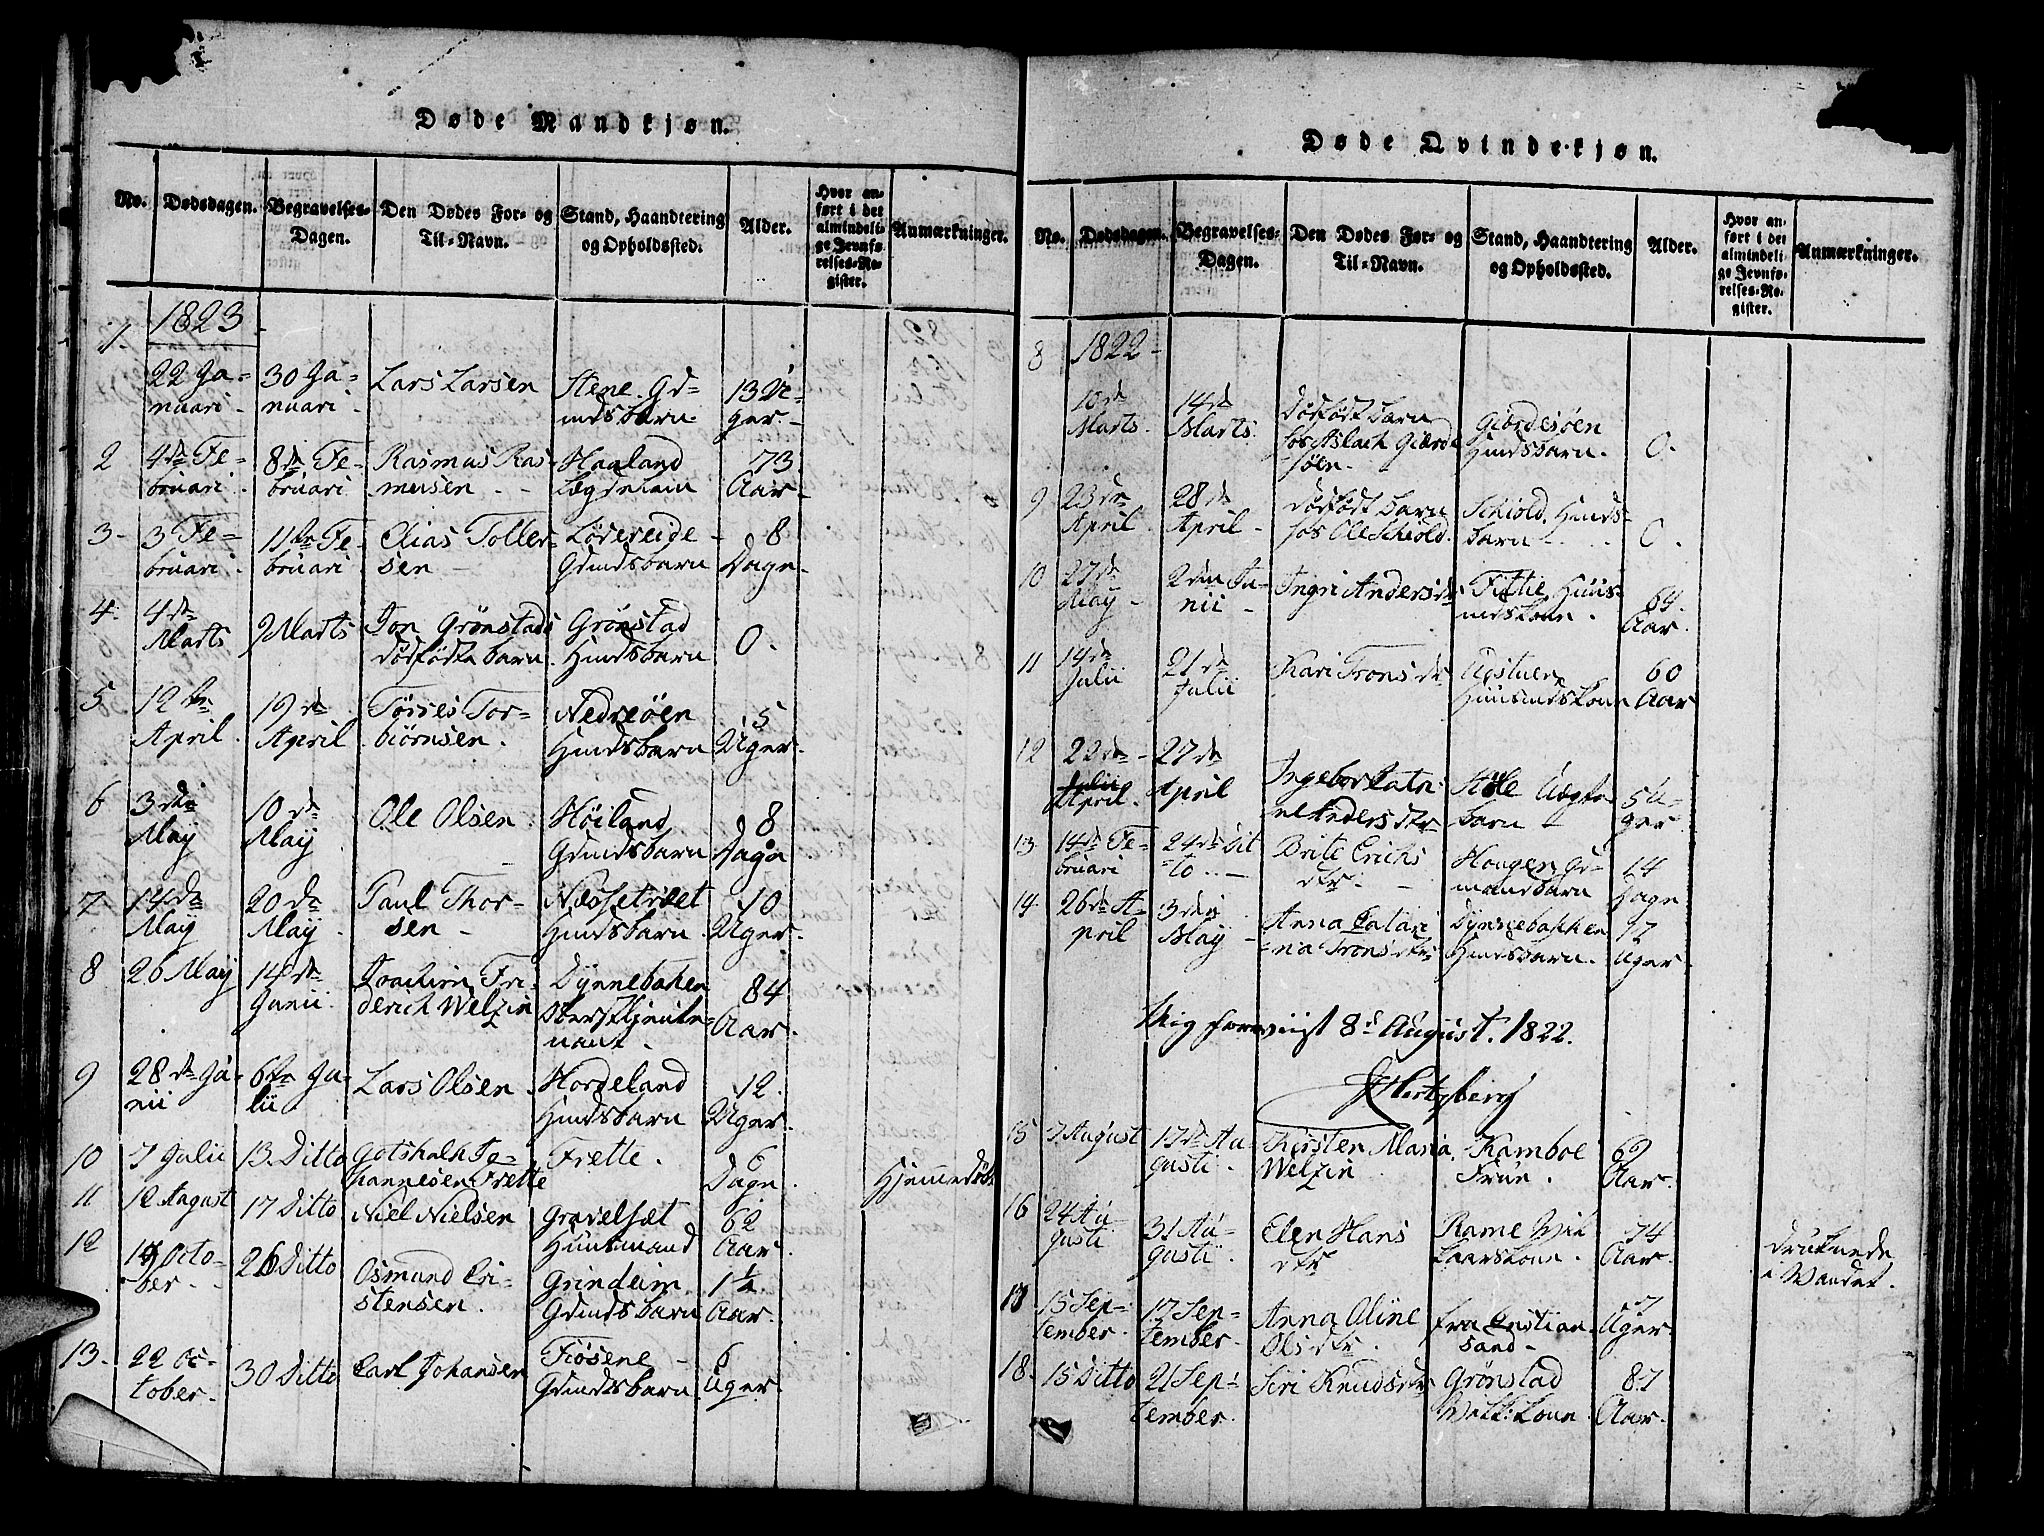 Døde Mandkjøn.
No. Dødsdagen. Begravelses-Dagen. Den Dødes For- og Til-Navn. Stand, Haandtering og Opholdssted. Alder. Hvor anført i det almindelige Jevnførelses-Register. Anmærkninger.
1823
1. 22 Ja=
nuari 30 Ja=
nuari Lars Larsen Stene Gd=
mdsbarn 13 U=
ger
2 4de Fe=
bruari 8de Fe=
bruari Rasmus Ras=
musen Haaland
Lægdslem 73
Aar
3 3 Fe=
bruari 11te Fe=
bruari Elias Toller=
sen Løsereide
Gdmdsbarn 8
Dage
4. 4de
Marts 9 Marts Jon Grønstads
dødfødte barn Grønstad
Hmdsbarn 0.
5 12te
April 19de
April Torbiørnsen Nedreøen
Hmdsbarn 5
Uger
6 3die
May 10de
May Ole Olsen Høiland
Gdmdsbarn 8
Dage
7 14de
May 20de
May Paul Thor=
sen Næssetvæt
Hmdsbarn 10
Uger
8 26 May 14de
Junii Joachim Fri=
derich Welzin Dynnebaken
Oberstljeute=
nant 84
Aar
9 28de Ju=
nii 6te Ju=
lii Lars Olsen Hordeland
Hmdsbarn 12
Uger
10 7 Julii 13 Ditto Gotshalk Jo=
hannesen Frette Frette. 6
Dage Hjemmedøbt
11 12 August 17 Ditto Niel Nielsen Gravelsæt
Huusmand 62
Aar
12 19 Octo=
ber 26 Ditto Osmund Cri=
stensen Grindeim
Gdmdsbarn 1½
Aar
13. 22 Oc=
tober 30 Ditto Carl Johansen Fiøsene
Gdmdsbarn 6
Uger
Døde Qvindekjøn.
No. Dødsdagen. Begravelses-Dagen. Den Dødes For- og Til-Navn. Stand, Haandtering og Opholdssted. Alder. Hvor anført i det almindelige Jevnførelses-Register. Anmærkninger.
1822
8 10de
Marts 14de
Marts Dødfødt barn
hos Aslach Giærde
søen Giærdesøen
Hmdsbarn 0.
9 23de
April 28de
April Dødfødt barn
hos Ole Schiold Schiold Hmds=
barn 0.
10 27de
May 2den Ju=
nii Ingri Andersdtr Fittie Huus=
mdskone 64
Aar
11 14de
Julii 21de
Julii Kari Tronsdtr
Huusmdskone 60
Aar
12 22de
April 27de
April Ingebor Catri=
ne Andersdtr
barn 5 U=
ger
13 14de Fe=
bruari 24de Dit=
to Brite Erichs
dtr Haugen Gd=
mandsbarn 14
Dage
14 26de A=
pril 3die
May Anna Catari=
na Tronsdtr Dynnebakken
Hmdsbarn 17
Uger
Mig foreviist 8de August. 1822.
Hertzberg
15 7 August 17de Au=
gusti Kirsten Maria
Welzin Kamboe
Frue. 69
Aar
16 24 Au=
gusti 31 Au=
gusti Elen Hans
dtr Rame 74
Aar Druknede
i Vandet.
17 15 Sep=
tember 17 Sep=
tember Anna Oline
Olsdtr fra Cristian
sand 7
Uger
18. 15 Ditto 21 Sep=
tember Siri Knudsdtr Grønstad 87
Aar